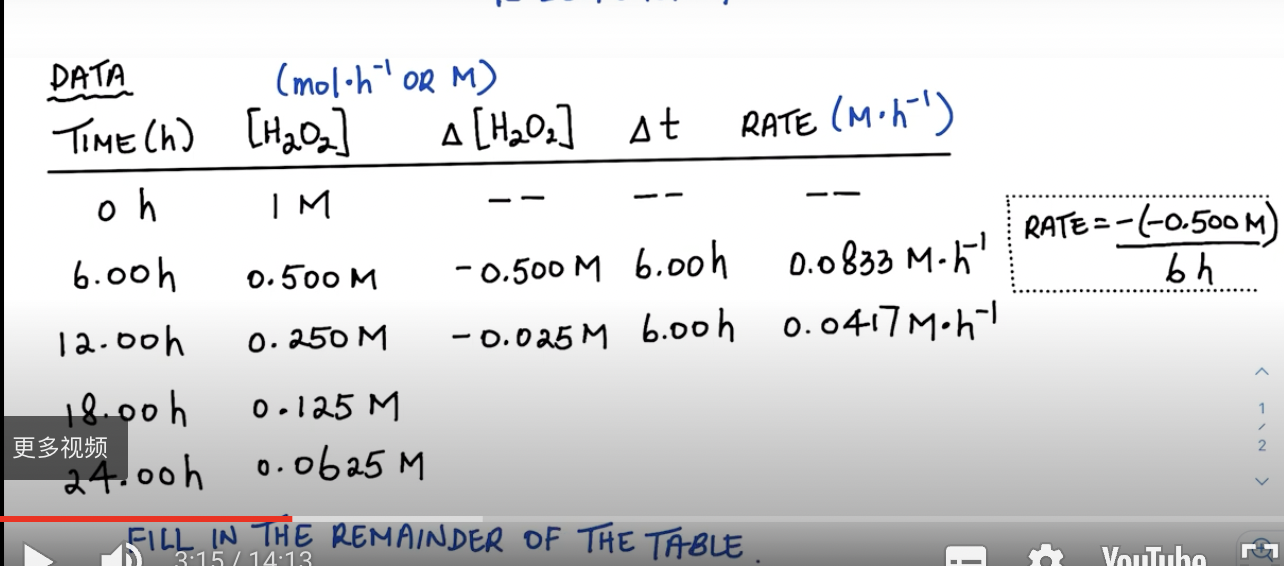 DATA (mol·h⁻¹ OR M)
TIME (h) [H₂O₂] Δ [H₂O₂] Δt RATE (M·h⁻¹)
0 h 1 M -- -- --
6.00h 0.500 M -0.500 M 6.00h 0.0833 M·h⁻¹
RATE = -(-0.500 M)
6 h
12.00h 0.250 M -0.025 M 6.00h 0.0417 M·h⁻¹
18.00h 0.125 M
更多视频
24.00h 0.0625 M
1
/
2
FILL IN THE REMAINDER OF THE TABLE.
3:15 / 14:13
YouTube